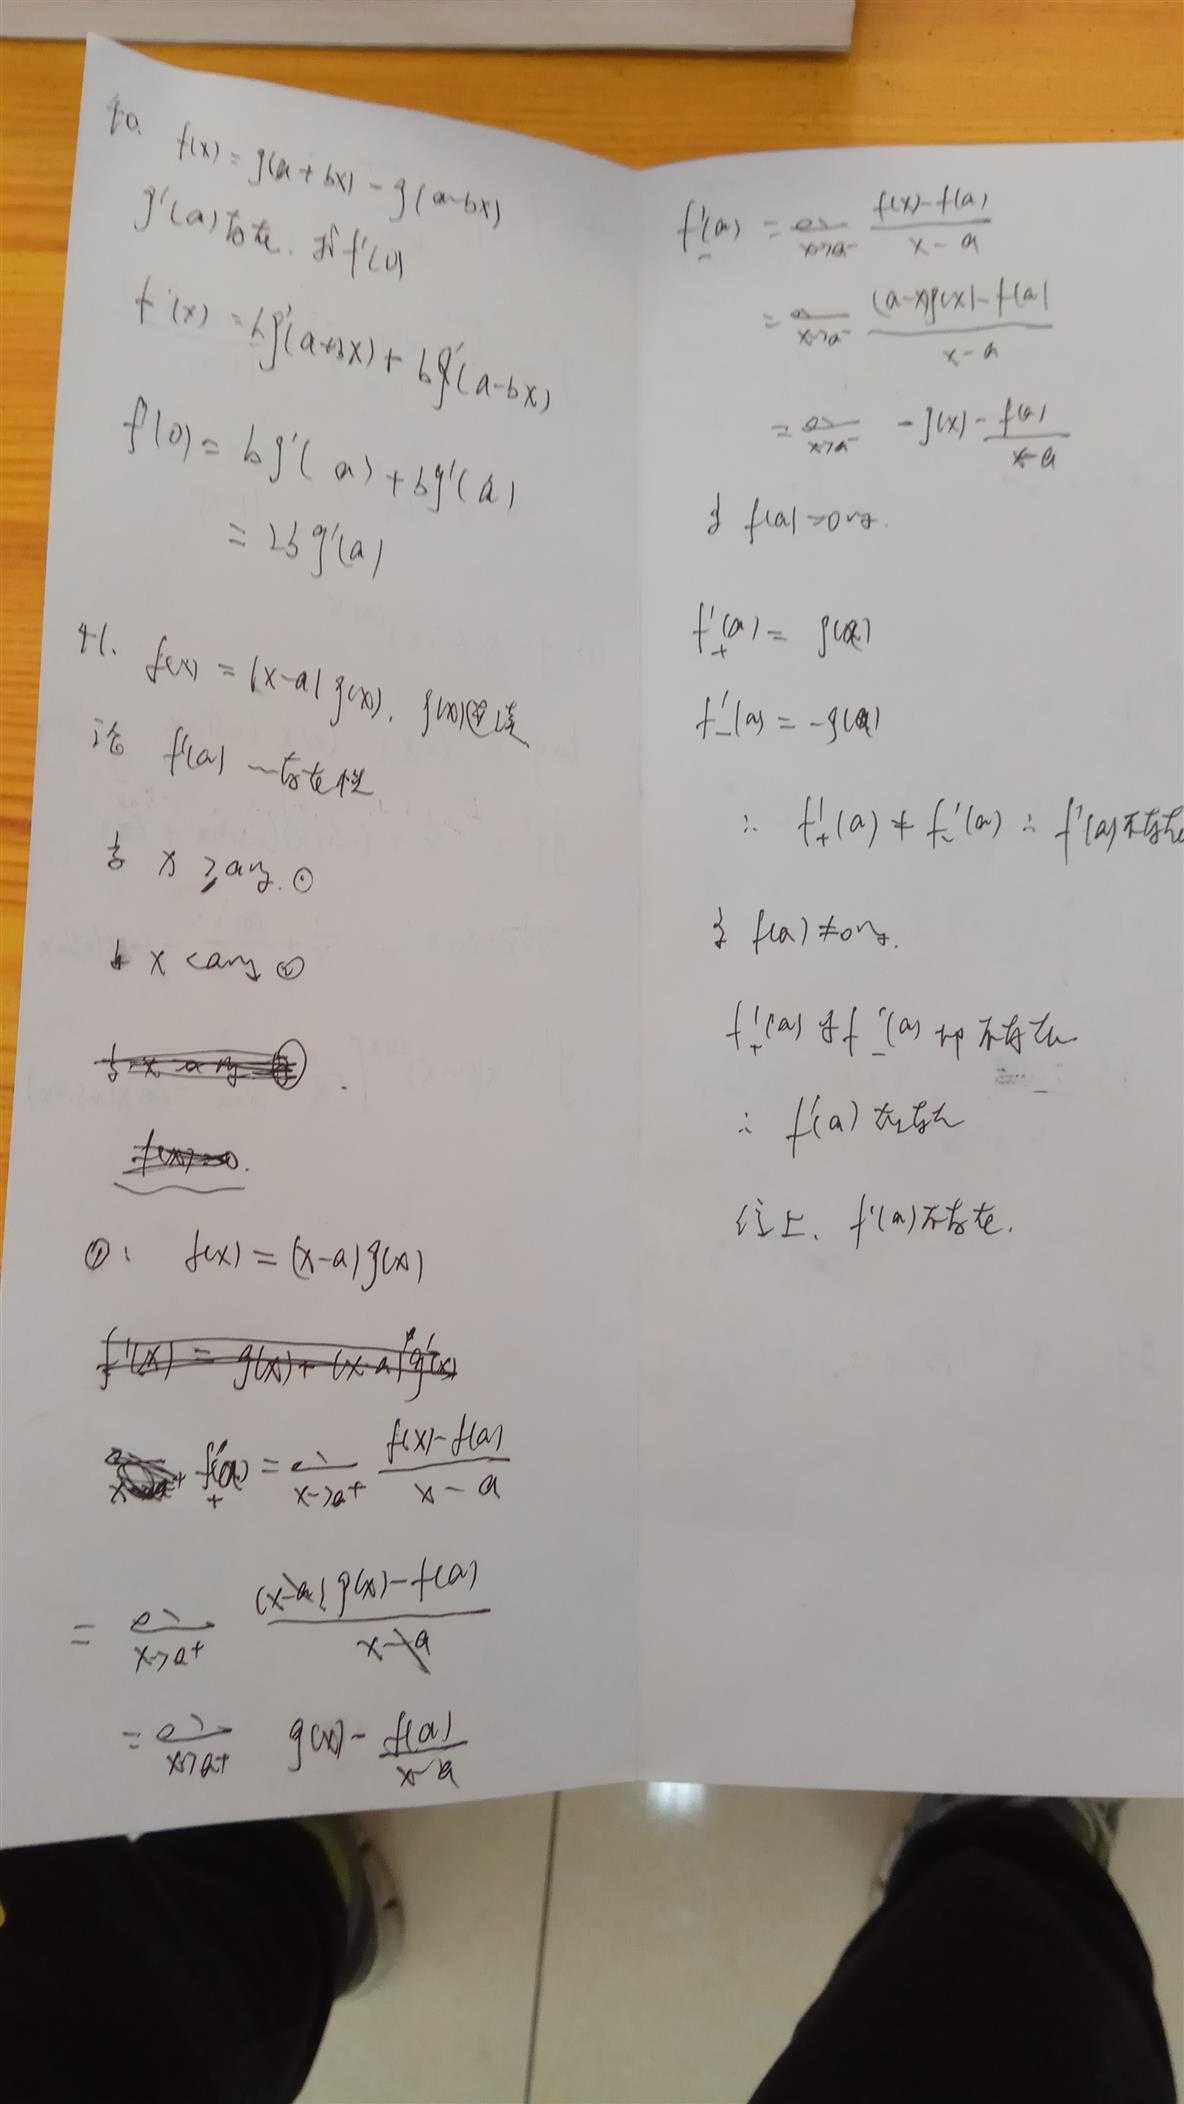 40.
f(x) = g(a+bx) - g(a-bx)
g'(a)存在. 求f'(0)
f'(x) = bg'(a+bx) + bg'(a-bx)
f'(0) = bg'(a) + bg'(a)
= 2bg'(a)
41. f(x) = |x-a|g(x). g(x)连续
论 f'(a) 存在性
当 x ≥ a时. ①
当 x < a时 ②
①: f(x) = (x-a)g(x)
f'(x) = g(x) + (x-a)g'(x)
f'₊(a) = lim x→a⁺ (f(x)-f(a))/(x-a)
= lim x→a⁺ ((x-a)g(x)-f(a))/(x-a)
= lim x→a⁺ g(x) - f(a)/(x-a)
f'₋(a) = lim x→a⁻ (f(x)-f(a))/(x-a)
= lim x→a⁻ ((a-x)g(x)-f(a))/(x-a)
= lim x→a⁻ -g(x) - f(a)/(x-a)
当 f(a)=0时.
f'₊(a) = g(a)
f'₋(a) = -g(a)
∴ f'₊(a) ≠ f'₋(a) ∴ f'(a)不存在
当 f(a)≠0时.
f'₊(a) 与 f'₋(a) 均不存在
∴ f'(a) 不存在
综上. f'(a)不存在.